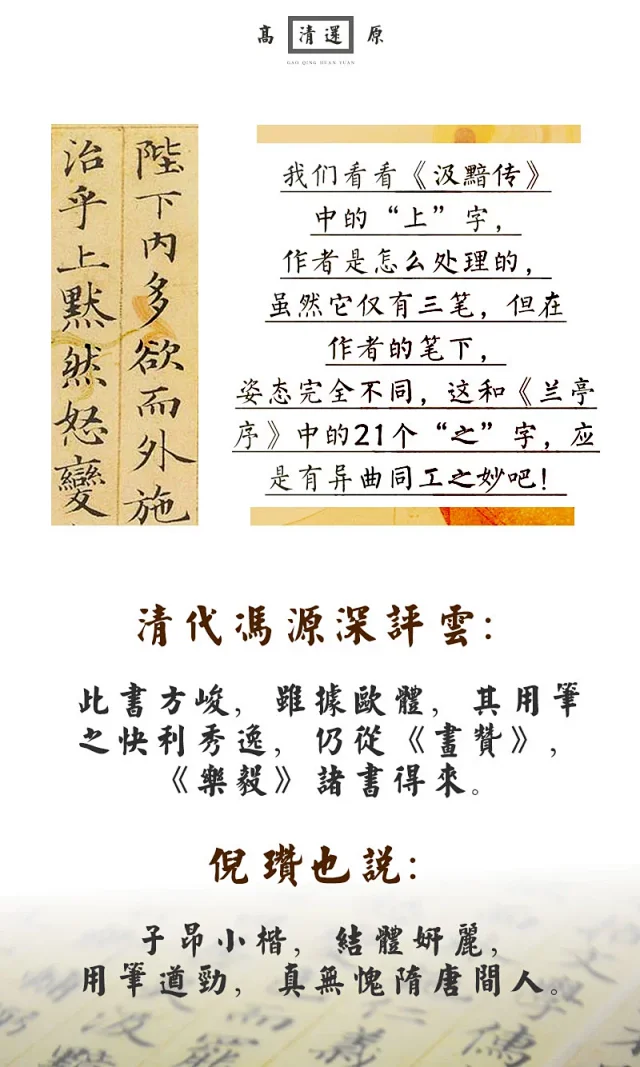 高清還原
GAO QING HUAN YUAN
陛下內多欲而外施
治乎上默然怒變
我们看看《汲黯传》
中的“上”字，
作者是怎么处理的，
虽然它仅有三笔，但在
作者的笔下，
姿态完全不同，这和《兰亭
序》中的21个“之”字，应
是有异曲同工之妙吧！
清代馮源深評雲：
此書方峻，雖據歐體，其用筆
之快利秀逸，仍從《畫贊》，
《樂毅》諸書得來。
倪瓚也説：
子昂小楷，結體妍麗，
用筆道勁，真無愧隋唐間人。